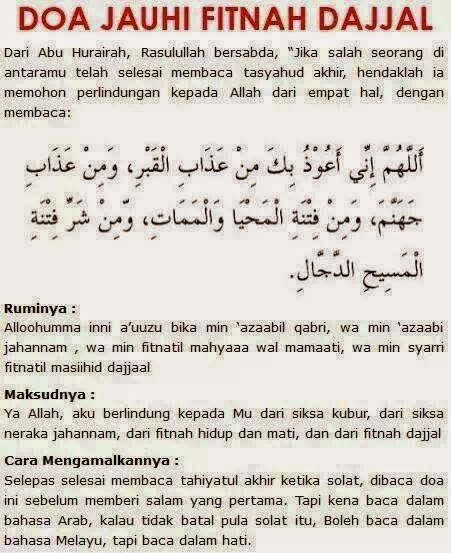 DOA JAUHI FITNAH DAJJAL
Dari Abu Hurairah, Rasulullah bersabda, "Jika salah seorang di
antaramu telah selesai membaca tasyahud akhir, hendaklah ia
memohon perlindungan kepada Allah dari empat hal, dengan
membaca:
أَللَّهُمَّ إِنِّي أَعُوْذُ بِكَ مِنْ عَذَابِ الْقَبْرِ، وَمِنْ عَذَابِ
جَهَنَّمَ، وَمِنْ فِتْنَةِ الْمَحْيَا وَالْمَمَاتِ، وَمِنْ شَرِّ فِتْنَةِ
الْمَسِيحِ الدَّجَّالِ.
Ruminya :
Alloohumma inni a'uuzu bika min 'azaabil qabri, wa min 'azaabi
jahannam , wa min fitnatil mahyaaa wal mamaati, wa min syarri
fitnatil masiihid dajjaal
Maksudnya :
Ya Allah, aku berlindung kepada Mu dari siksa kubur, dari siksa
neraka jahannam, dari fitnah hidup dan mati, dan dari fitnah dajjal
Cara Mengamalkannya :
Selepas selesai membaca tahiyatul akhir ketika solat, dibaca doa
ini sebelum memberi salam yang pertama. Tapi kena baca dalam
bahasa Arab, kalau tidak batal pula solat itu, Boleh baca dalam
bahasa Melayu, tapi baca dalam hati.